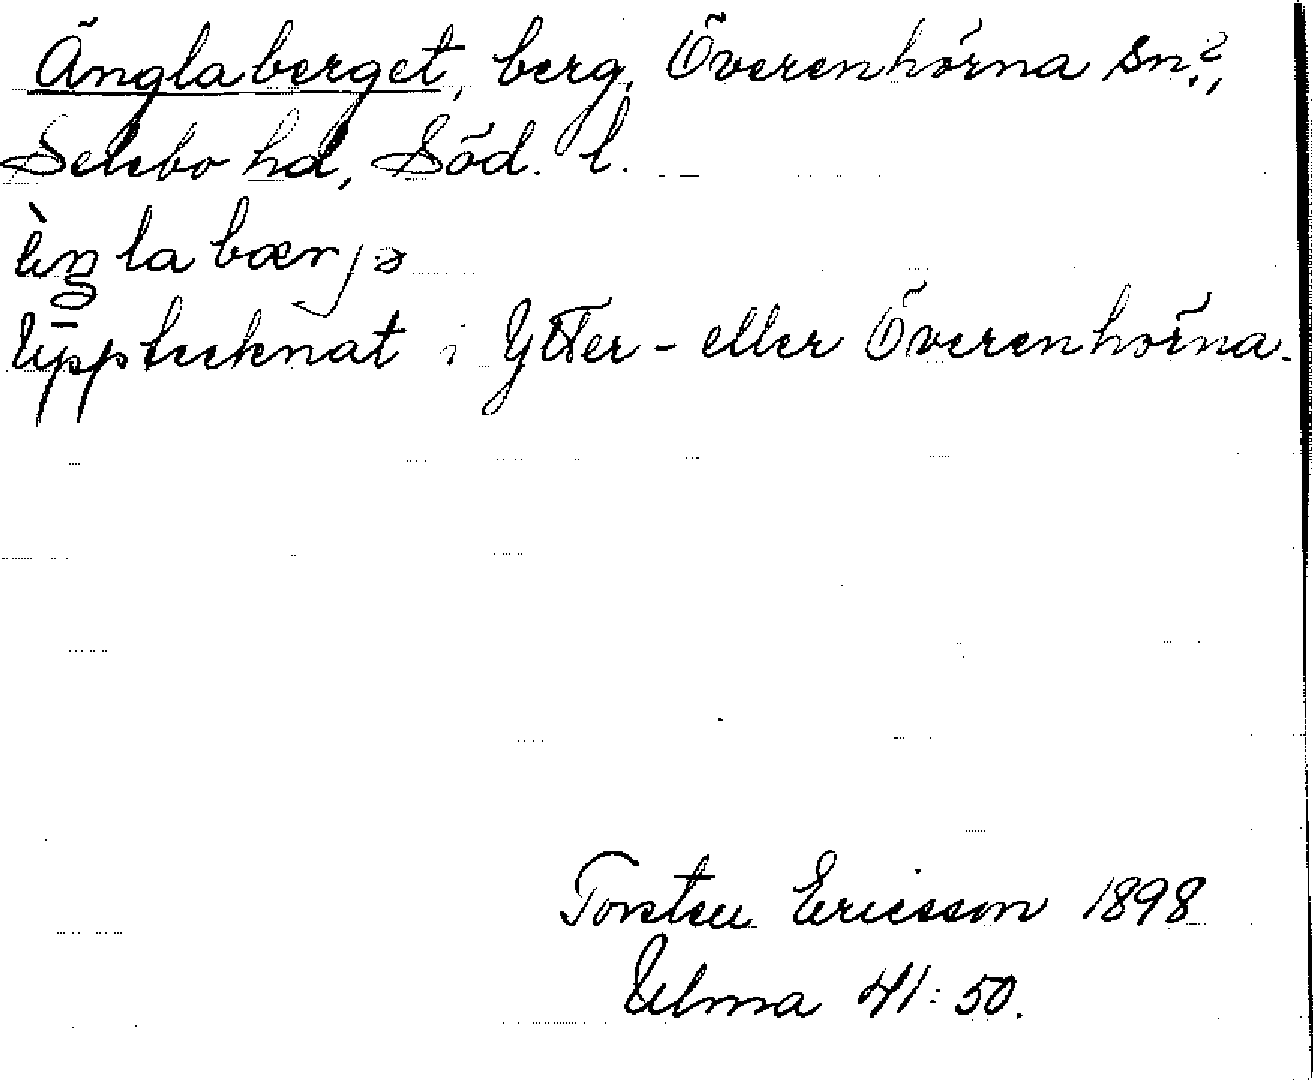 Änglaberget, berg, Överenhörna sn?,
Selebo hd, Söd. l.
Uppteknat i Ytter- eller Överenhörna.
Torsten Ericsson 1898
Ulma 41:50.